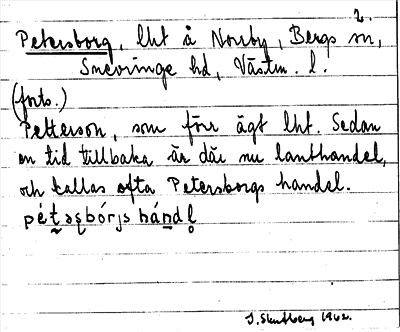 2.
Petersborg, lht å Norrby, Bergs sn,
Snevringe hd, Västm. l.
(forts.)
Petterson, som förr ägt lht. Sedan
en tid tillbaka är där nu lanthandel,
och kallas ofta Petersborgs handel.
hándl̥
1962.